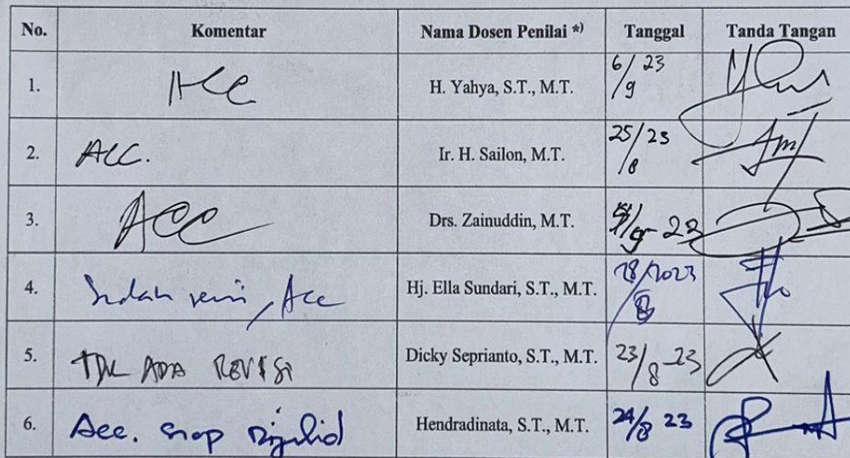 No. Komentar Nama Dosen Penilai *) Tanggal Tanda Tangan
1. Acc H. Yahya, S.T., M.T. 6/9 23
2. ACC. Ir. H. Sailon, M.T. 25/8 23
3. Acc Drs. Zainuddin, M.T. 23
4. Sudah revisi, Acc Hj. Ella Sundari, S.T., M.T. 28/8 2023
5. TDK ADA REVISI Dicky Seprianto, S.T., M.T. 23/8-23
6. Acc. siap dijilid Hendradinata, S.T., M.T. 24/8 23